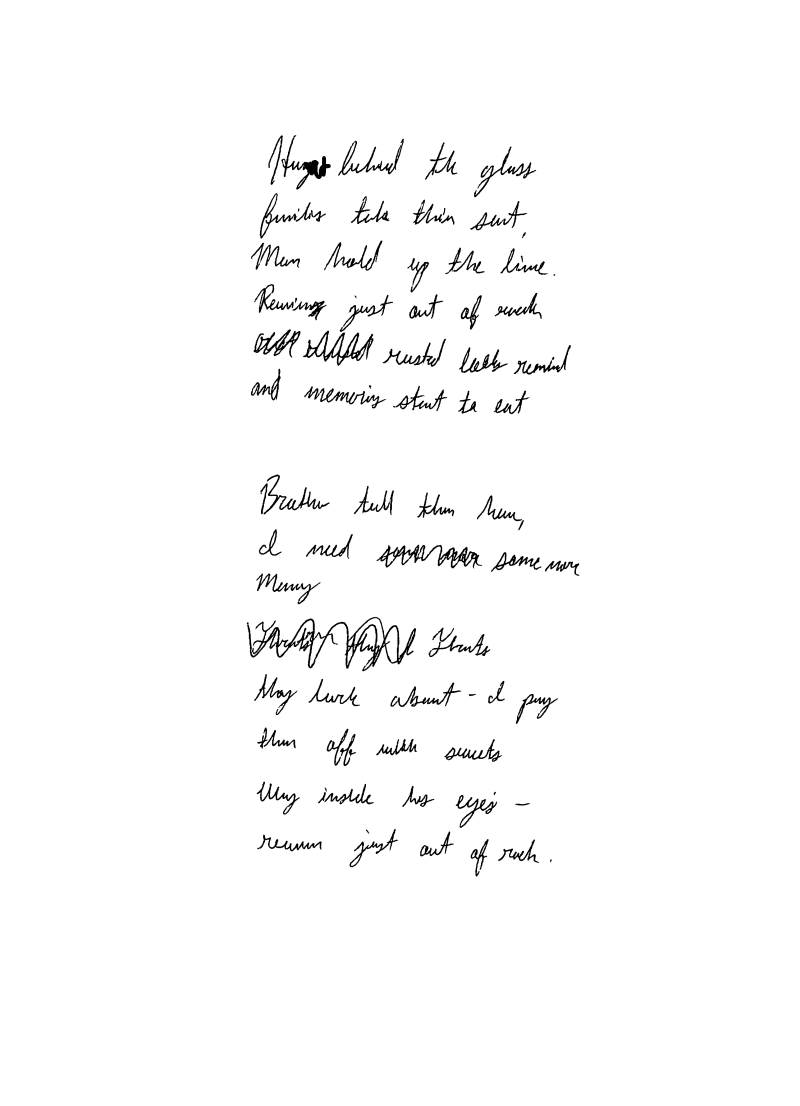 behind the glass
families take their seat,
Man hold up the line.
just out of reach
rusted locks remind
and memories start to eat
Brother tell them
I need some more
Mercy
Ghosts
They lurk about - I pay
them off with secrets
inside his eyes -
remain just out of reach.